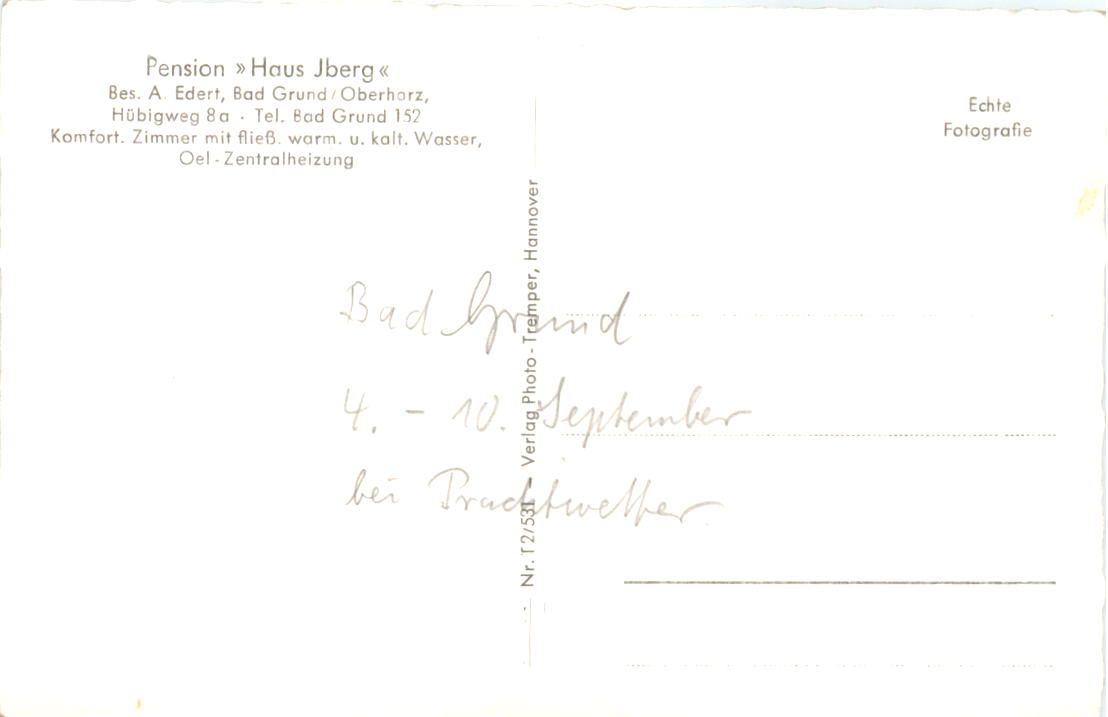 Pension »Haus Jberg«
Bes. A. Edert, Bad Grund/Oberharz,
Hübigweg 8a · Tel. Bad Grund 152
Komfort. Zimmer mit fließ. warm. u. kalt. Wasser,
Oel-Zentralheizung
Echte
Fotografie
Nr. T 2/531 – Verlag Photo-Tremper, Hannover
Bad Grund
4. – 10. September
bei Prachtwetter